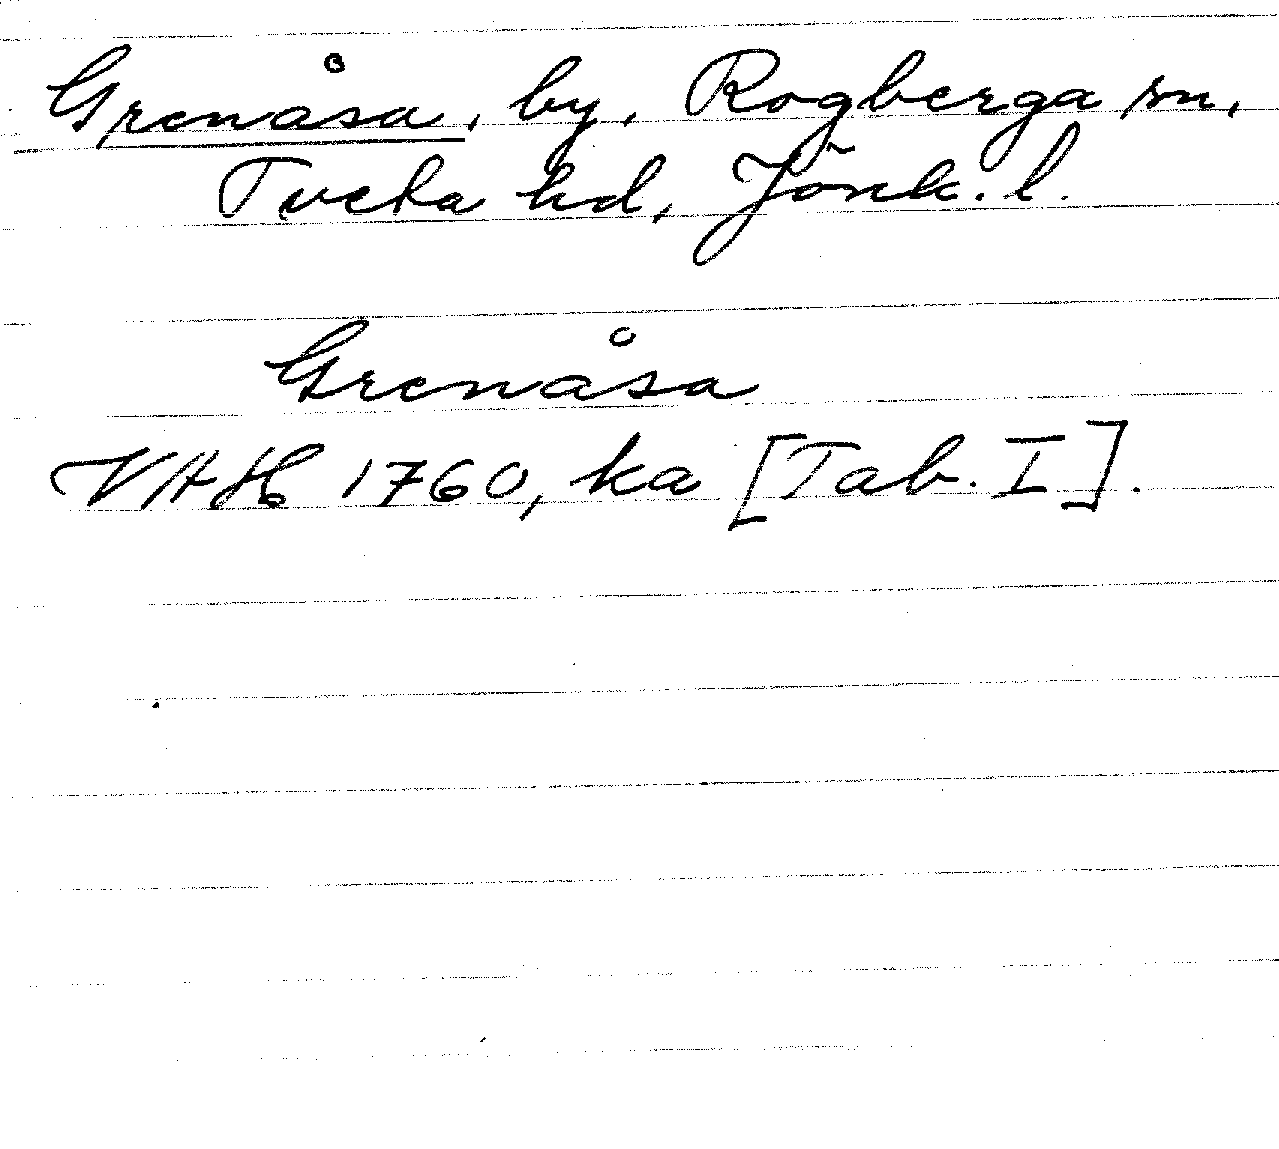 Grenåsa, by, Rogberga sn,
Tveta hd, Jönk. l.
Grenåsa
VAH 1760, ka [Tab. I].